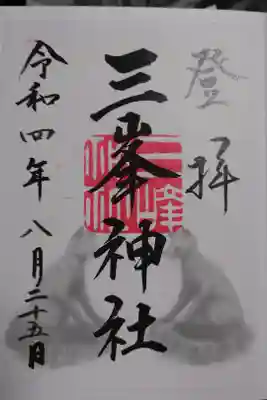 登拝
三峯神社
令和四年 八月二十五日